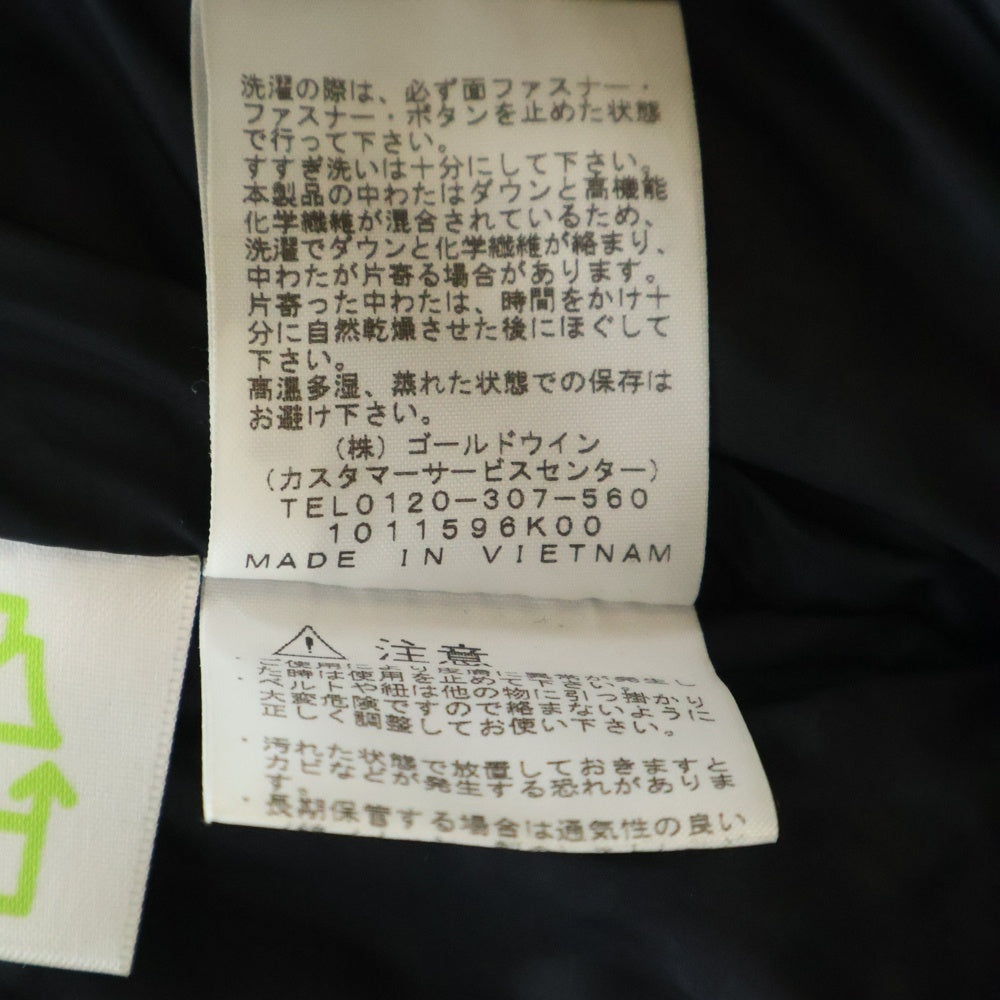 洗濯の際は、必ず面ファスナー・
ファスナー・ボタンを止めた状態
で行って下さい。
すすぎ洗いは十分にして下さい。
本製品の中わたはダウンと高機能
化学繊維が混合されているため、
洗濯でダウンと化学繊維が絡まり、
中わたが片寄る場合があります。
片寄った中わたは、時間をかけ十
分に自然乾燥させた後にほぐして
下さい。
高温多湿、蒸れた状態での保存は
お避け下さい。
(株)ゴールドウイン
(カスタマーサービスセンター)
TEL0120-307-560
1011596K00
MADE IN VIETNAM
注意
ベルトや紐は他の物に引っ掛かり
大変危険ですので絡まないように
正しく調整してお使い下さい。
・汚れた状態で放置しておきますと
カビなどが発生する恐れがありま
す。
・長期保管する場合は通気性の良い